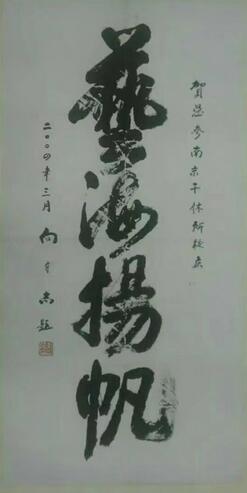 賀总参南京干休所校庆
藝海揚帆
二〇〇四年三月 向守志题